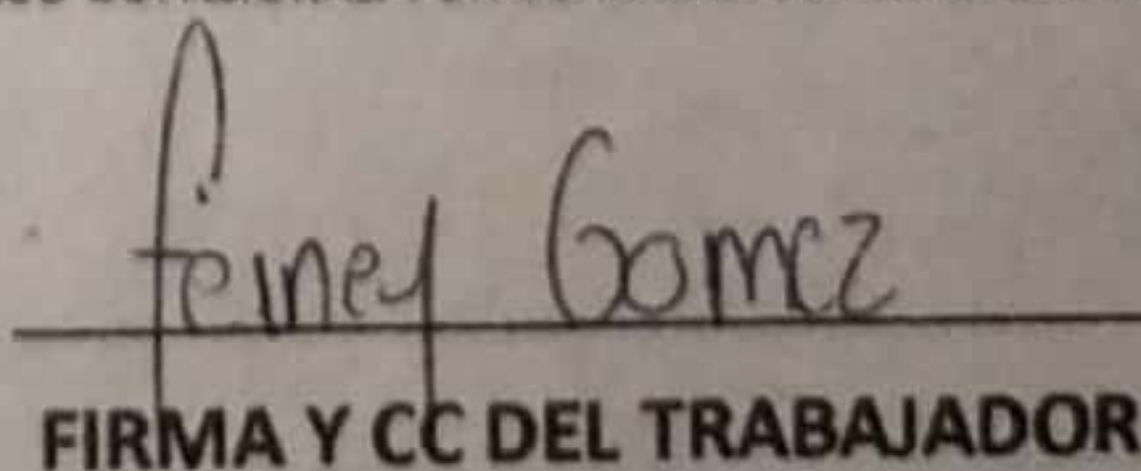 feiney Gomez
FIRMA Y CC DEL TRABAJADOR